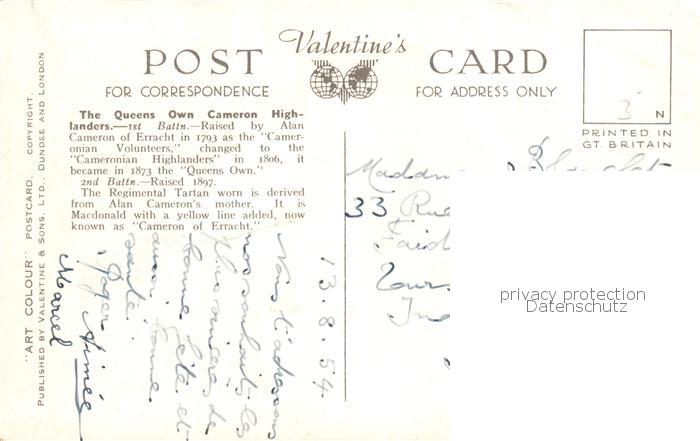 Valentine's
POST CARD
FOR CORRESPONDENCE
FOR ADDRESS ONLY
N
PRINTED IN
GT. BRITAIN
"ART COLOUR" POSTCARD. COPYRIGHT.
PUBLISHED BY VALENTINE & SONS, LTD., DUNDEE AND LONDON
The Queens Own Cameron High-
landers.—1st Battn.—Raised by Alan
Cameron of Erracht in 1793 as the "Camer-
onian Volunteers," changed to the
"Cameronian Highlanders" in 1806, it
became in 1873 the "Queens Own."
2nd Battn.—Raised 1897.
The Regimental Tartan worn is derived
from Alan Cameron's mother. It is
Macdonald with a yellow line added, now
known as "Cameron of Erracht."
13.8.54
Nous t'adressons
nos souhaits les
plus sincères de
bonne fête et
aussi bonne
santé.
Roger Aimée
Marcel
Madam
33 Rue
Tours
privacy protection
Datenschutz